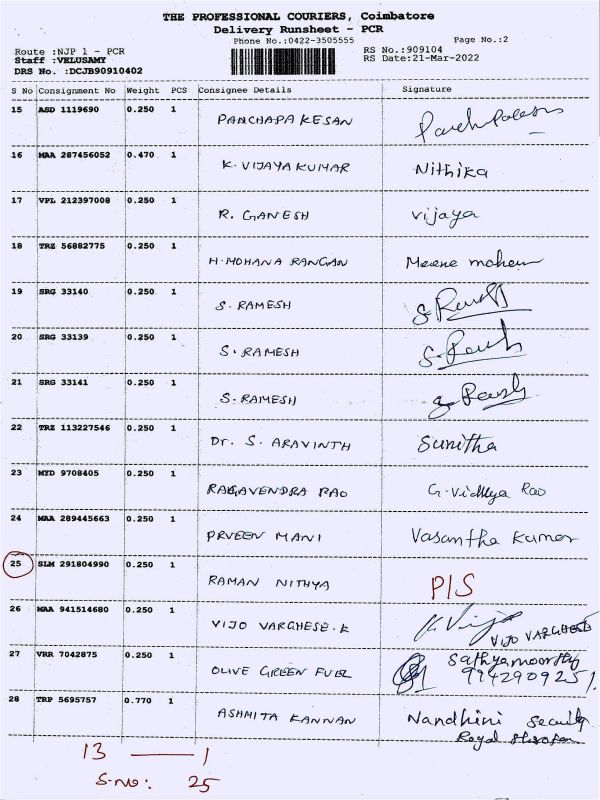 THE PROFESSIONAL COURIERS, Coimbatore
Delivery Runsheet - PCR
Phone No.:0422-3505555 Page No.:2
Route :NJP 1 - PCR RS No.:909104
Staff :VELUSAMY RS Date:21-Mar-2022
DRS No. :DCJB90910402
S No Consignment No Weight PCS Consignee Details Signature
15 ASD 1119690 0.250 1 PANCHAPAKESAN
16 MAA 287456052 0.470 1 K. VIJAYAKUMAR Nithika
17 VPL 212397008 0.250 1 R. GANESH Vijaya
18 TRZ 56882775 0.250 1 H. MOHANA RANGAN
19 SRG 33140 0.250 1 S. RAMESH
20 SRG 33139 0.250 1 S. RAMESH
21 SRG 33141 0.250 1 S. RAMESH
22 TRZ 113227546 0.250 1 Dr. S. ARAVINTH Sunitha
23 MYD 9708405 0.250 1 RAGAVENDRA RAO G. Vidhya Rao
24 MAA 289445663 0.250 1 PRVEEN MANI Vasantha Kumar
25 SLM 291804990 0.250 1 RAMAN NITHYA P/S
26 MAA 941514680 0.250 1 VIJO VARGHESE. K K. Vijo VIJO VARGHESE
27 VRR 7042875 0.250 1 OLIVE GREEN FUEL Sathyamoorthy
9942909251
28 TRP 5695757 0.770 1 ASHMITA KANNAN Nandhini Security
Royal
13 — 1
S.no: 25